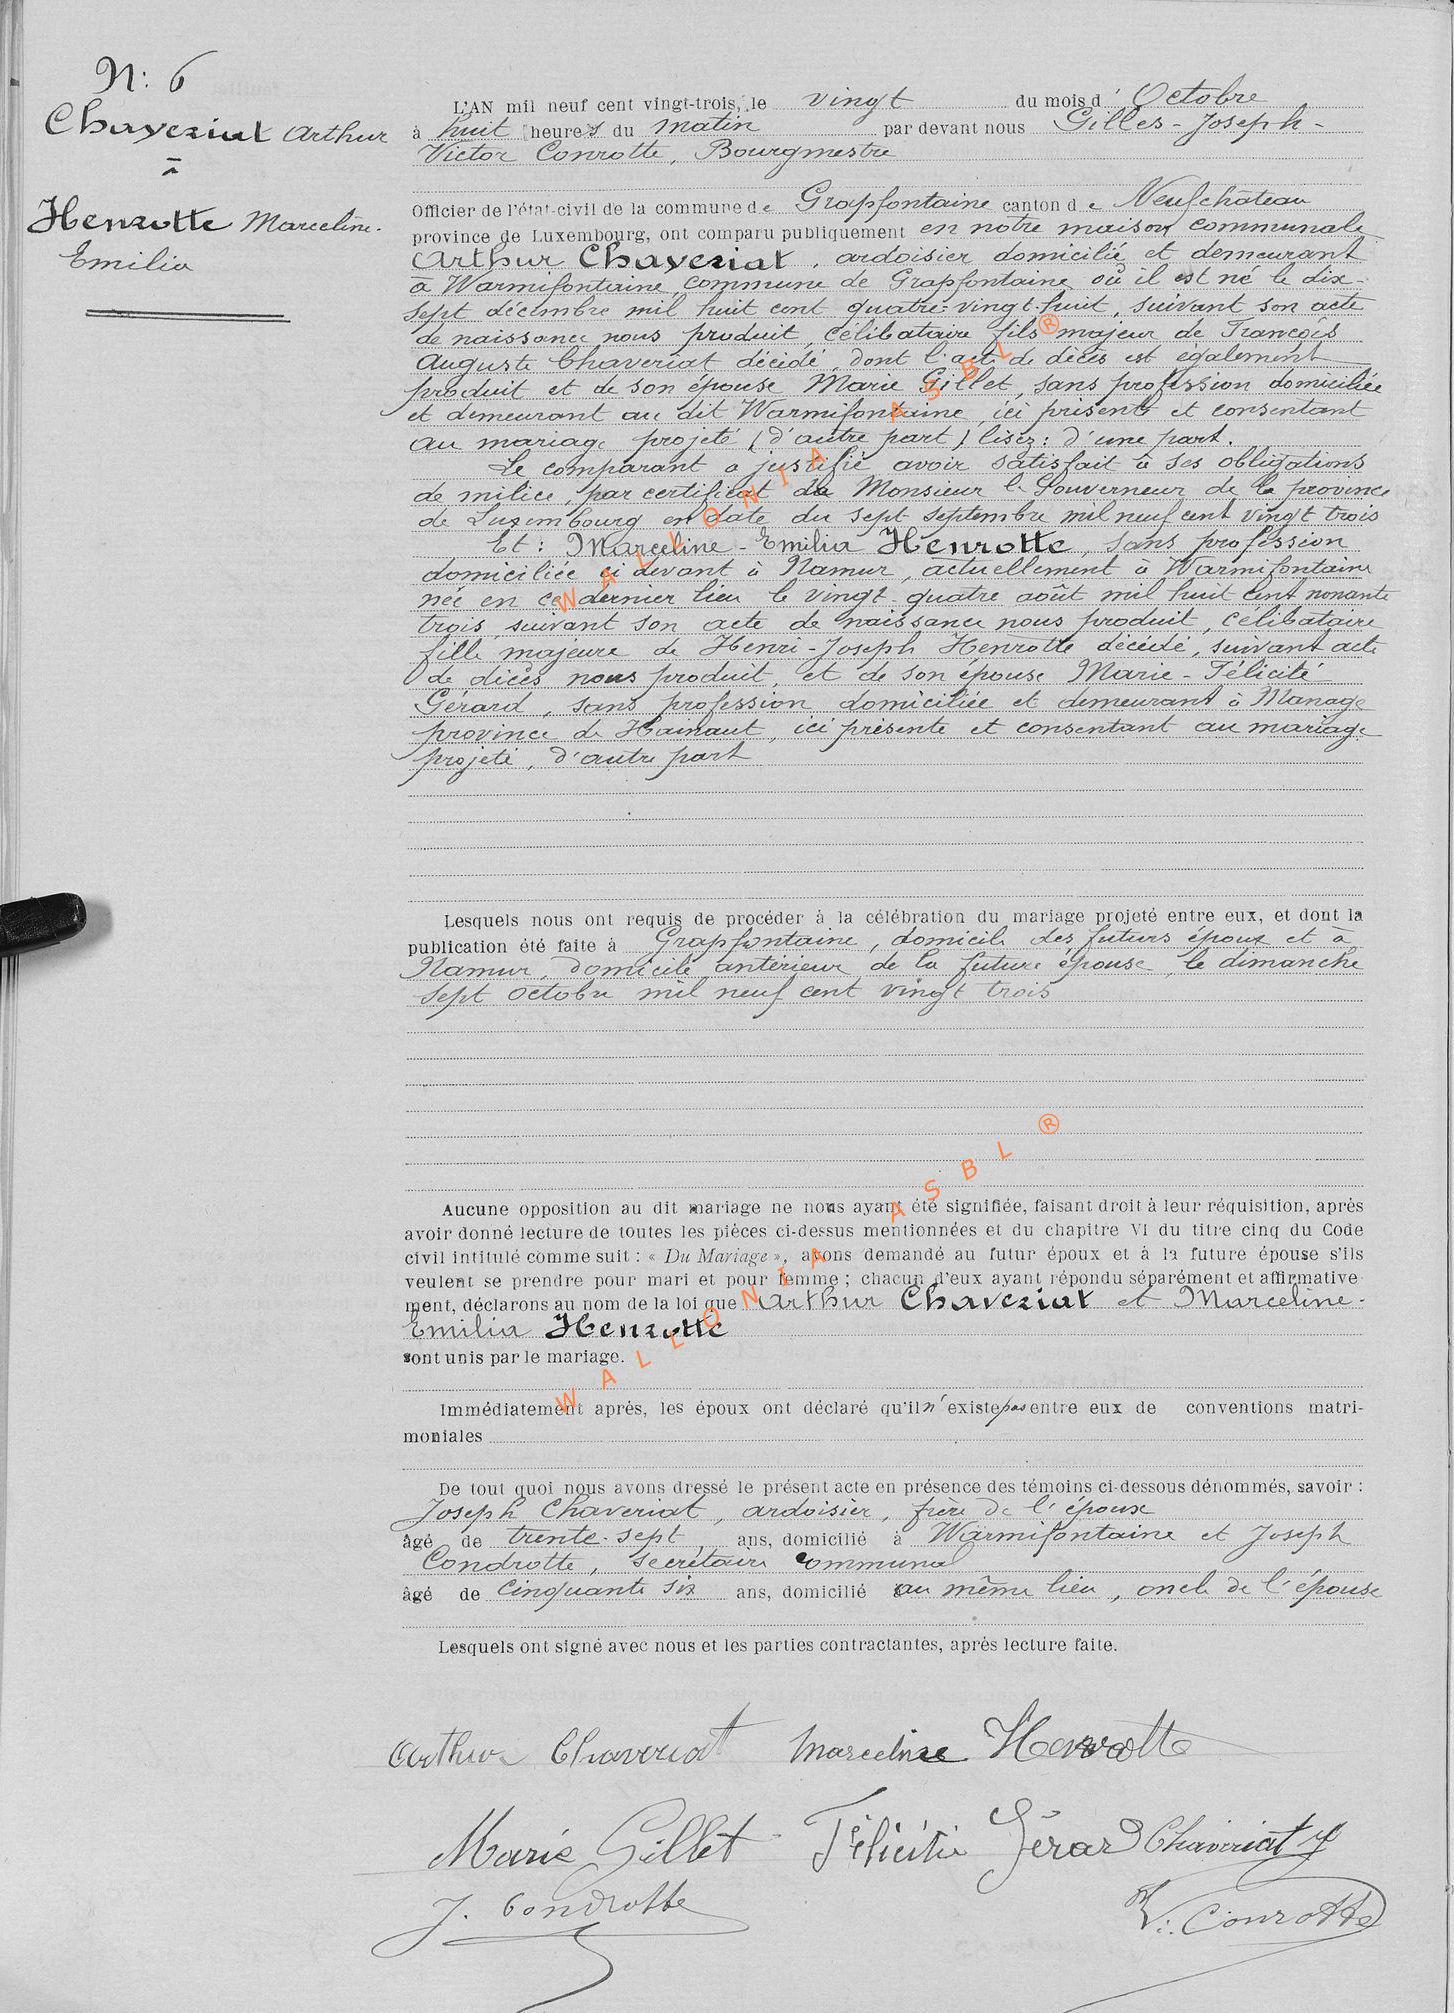 N: 6
Chaveriat Arthur
=
à
Henrotte Marceline-
Emilia
L'AN mil neuf cent vingt-trois, le vingt du mois d'Octobre
à huit heures du matin par devant nous Gilles-Joseph-
Victor Conrotte, Bourgmestre
Officier de l'état-civil de la commune de Grapfontaine canton de Neufchâteau
province de Luxembourg, ont comparu publiquement en notre maison communale
Arthur Chaveriat, ardoisier domicilié et demeurant
à Warmifontaine commune de Grapfontaine où il est né le dix-
sept décembre mil huit cent quatre-vingt-huit, suivant son acte
de naissance nous produit, célibataire fils majeur de François
Auguste Chaveriat décédé, dont l'acte de décès est également
produit et de son épouse Marie Gillet, sans profession domiciliée
et demeurant au dit Warmifontaine, ici présente et consentant
au mariage projeté (d'autre part) lisez: d'une part.
Le comparant a justifié avoir satisfait à ses obligations
de milice, par certificat de Monsieur le Gouverneur de la province
de Luxembourg en date du sept septembre mil neuf cent vingt trois
Et: Marceline-Emilia Henrotte, sans profession
domiciliée ci devant à Namur, actuellement à Warmifontaine
née en ce dernier lieu le vingt-quatre août mil huit cent nonante
trois suivant son acte de naissance nous produit, célibataire
fille majeure de Henri-Joseph Henrotte décédé, suivant acte
de décès nous produit, et de son épouse Marie-Félicité
Gérard, sans profession domiciliée et demeurant à Manage
province de Hainaut, ici présente et consentant au mariage
projeté, d'autre part
Lesquels nous ont requis de procéder à la célébration du mariage projeté entre eux, et dont la
publication été faite à Grapfontaine, domicile des futurs époux et à
Namur, domicile antérieur de la future épouse le dimanche
sept octobre mil neuf cent vingt trois
Aucune opposition au dit mariage ne nous ayant été signifiée, faisant droit à leur réquisition, après
avoir donné lecture de toutes les pièces ci-dessus mentionnées et du chapitre VI du titre cinq du Code
civil intitulé comme suit : « Du Mariage », avons demandé au futur époux et à la future épouse s'ils
veulent se prendre pour mari et pour femme ; chacun d'eux ayant répondu séparément et affirmative
ment, déclarons au nom de la loi que Arthur Chaveriat et Marceline-
Emilia Henrotte
sont unis par le mariage.
Immédiatement après, les époux ont déclaré qu'il n'existe pas entre eux de conventions matri-
moniales
De tout quoi nous avons dressé le présent acte en présence des témoins ci-dessous dénommés, savoir :
Joseph Chaveriat, ardoisier, frère de l'époux
âgé de trente-sept, ans, domicilié à Warmifontaine et Joseph
Condrotte, secrétaire communal
âgé de cinquante six ans, domicilié au même lieu, oncle de l'épouse
Lesquels ont signé avec nous et les parties contractantes, après lecture faite.
Arthur Chaveriat Marceline Henrotte
Marie Gillet Félicitie Gérard Chaveriat J
J. Condrotte V. Conrotte
WALLONIA ASBL ®
WALLONIA ASBL ®